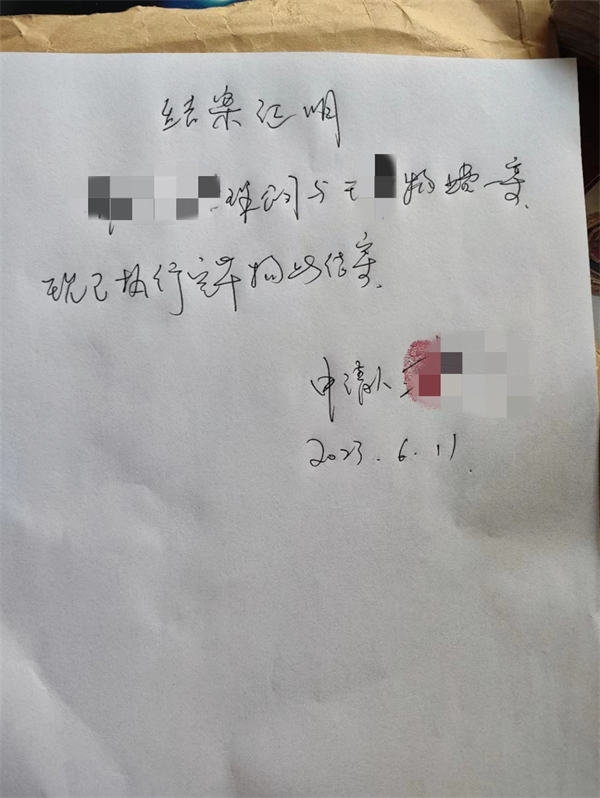 结案证明
与王 物 案.
现已执行完毕特此结案.
申请人
2023.6.11.